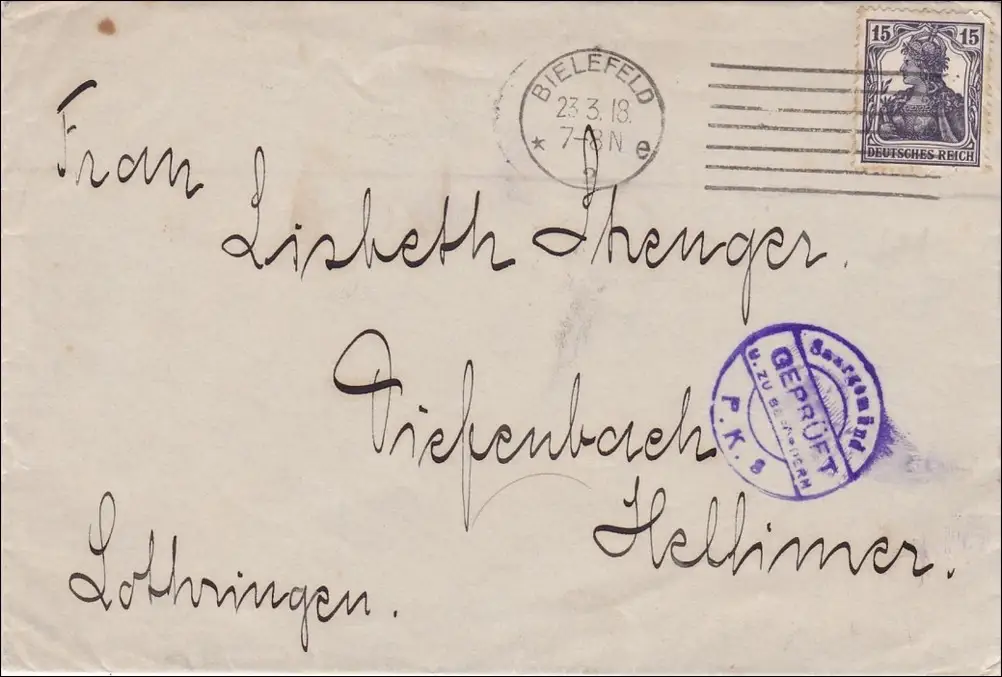 15 15
DEUTSCHES REICH
BIELEFELD
23.3.18.
7-8 N
* e
2
Frau
Lisbeth Shenger.
Saargemünd
GEPRÜFT
U. ZU BEFÖRDERN
P. K. 8
Diefenbach
Hellimer.
Lothringen.